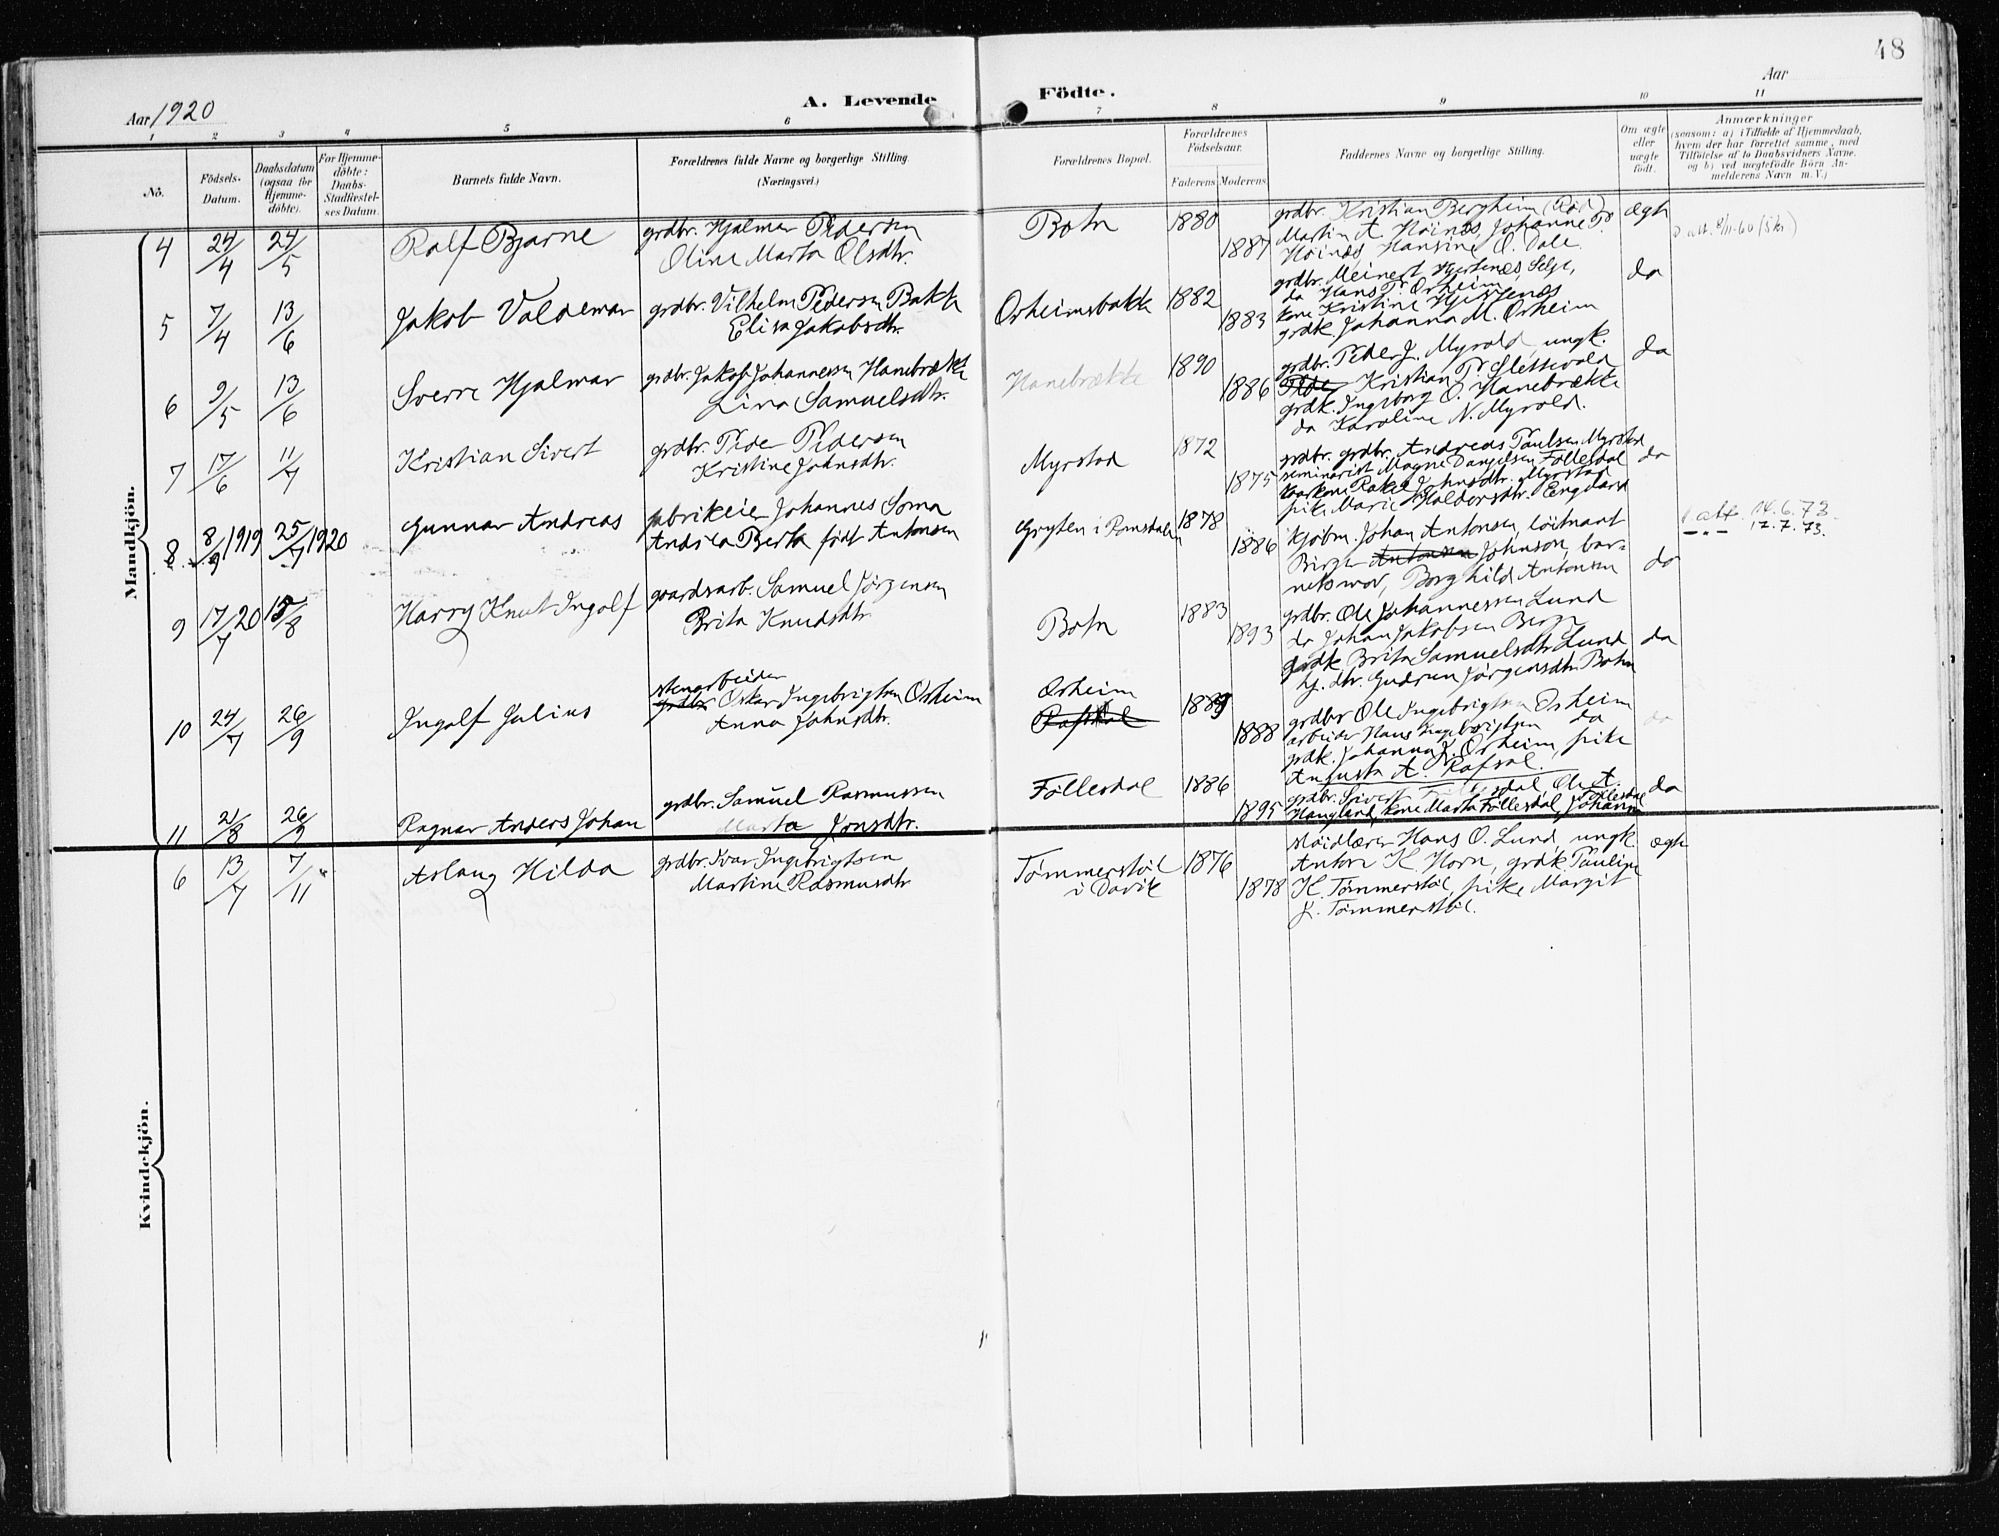 48
Aar 1920
A. Levende
Födte.
Aar
1 2 3 4 5 6 7 8 9 10 11
No.
Födsels-
Datum.
Daabsdatum
(ogsaa for
Hjemme-
döbte).
For Hjemme-
döbte:
Daabs-
Stadfæstel-
ses Datum.
Barnets fulde Navn.
Forældrenes fulde Navne og borgerlige Stilling.
(Næringsvei.)
Forældrenes Bopæl.
Forældrenes
Födselsaar.
Faderens
Moderens
Faddernes Navne og borgerlige Stilling.
Om ægte
eller
uægte
födt.
Anmærkninger
(saasom: a) i Tilfælde af Hjemmedaab,
hvem der har forrettet samme, med
Tilföielse af to Daabsvidners Navne.
og b) ved uægtefödte Börn An-
melderens Navn m. V.)
Mandkjön.
4 24/4 24/5 Ralf Bjarne
grdbr. Hjalmar Pedersen
Oline Marta Olsdtr.
Botn 1880 1887
grdbr. Kristian Bergheim (Rør)
Martin A. Høinæs, Johanne P.
Høinæs, Hansine O. Dale.
ægte
5 7/4 13/6 Jakob Valdemar
grdbr. Vilhelm Pedersen Bakke
Elisa Jakobsdtr.
Orheimsbakke 1882 1883
grdbr. Meinert Hjertenæs, Selje,
do Hans P. Orheim
kone Kristine Hjertenæs
grdk. Johanna M. Orheim
do
6 9/5 13/6 Sverre Hjalmar
grdbr. Jakob Johannessen Hanebrække
Lina Samuelsdtr.
Hanebrække 1890 1886
grdbr. Peder J. Myrold, ungk.
Peder Kristian P. Slettevold
grdk. Ingeborg O. Hanebrække
do Karoline N. Myrold.
do
7 17/6 11/7 Kristian Sivert
grdbr. Peder Pedersen
Kristine Johnsdtr.
Myrstad 1872 1875
grdbr. grdbr. Andreas Paulsen Myrstad
seminarist Magne Danielsen Föllesdal
kaarkone Rakel Johnsdtr. Myrstad
pike Marie Haldorsdtr. Engeland
do
8 8/9 1919 25/7 1920 Gunnar Andreas
fabrikeier Johannes Soma
Andrea Berta født Antonsen
Grytten i Romsdalen 1878 1886
kjøbm. Johan Antonsen, löitnant
Birger Antonsen Johnson, bar-
netsmor, Borghild Antonsen
do
1 att. 14.6.73.
– " – 17.7.73.
9 17/7 20 15/8 Harry Knut Ingolf
gaardsarb. Samuel Jørgensen
Brita Knudsdtr.
Botn 1883 1893
grdbr. Ole Johannessen Lund
do Johan Jakobsen Berge
grdk. Brita Samuelsdtr. Lund
hj. dtr. Gudrun Jörgensdtr. Botn
do
10 24/7 26/9 Ingolf Julius
stenarbeider
grdbr. Oskar Ingebrigtsen Orheim
Anna Johnsdtr.
Orheim
Rafsdal
1889 1888
grdbr Ole Ingebrigtsen Orheim
arbeider Hans Ingebrigtsen do
grdk. Johanna J. Orheim, pike
Augusta A. Rafsal.
do
11 21/8 26/9 Ragnar Anders Johan
grdbr. Samuel Rasmussen
Marta Jonsdtr.
Föllesdal 1886 1895
grdbr. Sivert Föllesdal, Ole A.
Haugland, kone Marta Föllesdal, Johanne
Föllesdal
do
Kvindekjön.
6 13/7 7/11 Aslaug Hilda
grdbr. Ivar Ingebrigtsen
Martine Rasmusdtr
Tømmerstøl
i Davik
1876 1878
sløidlærer Hans O. Lund, ungk.
Anton K. Horn, grdk. Pauline
K. Tømmerstøl, pike Margit
J. Tømmerstøl.
ægte